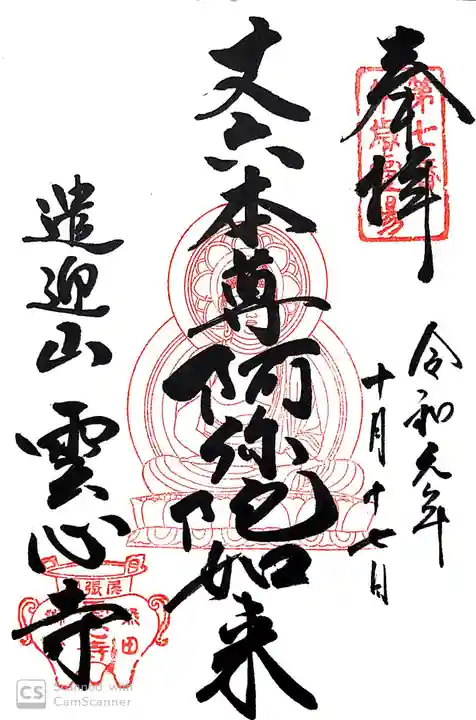 奉拝
第七番
令和元年
十月十七日
丈六本尊阿弥陀如来
遣迎山 雲心寺
尾張
熱田
CS Scanned with
CamScanner